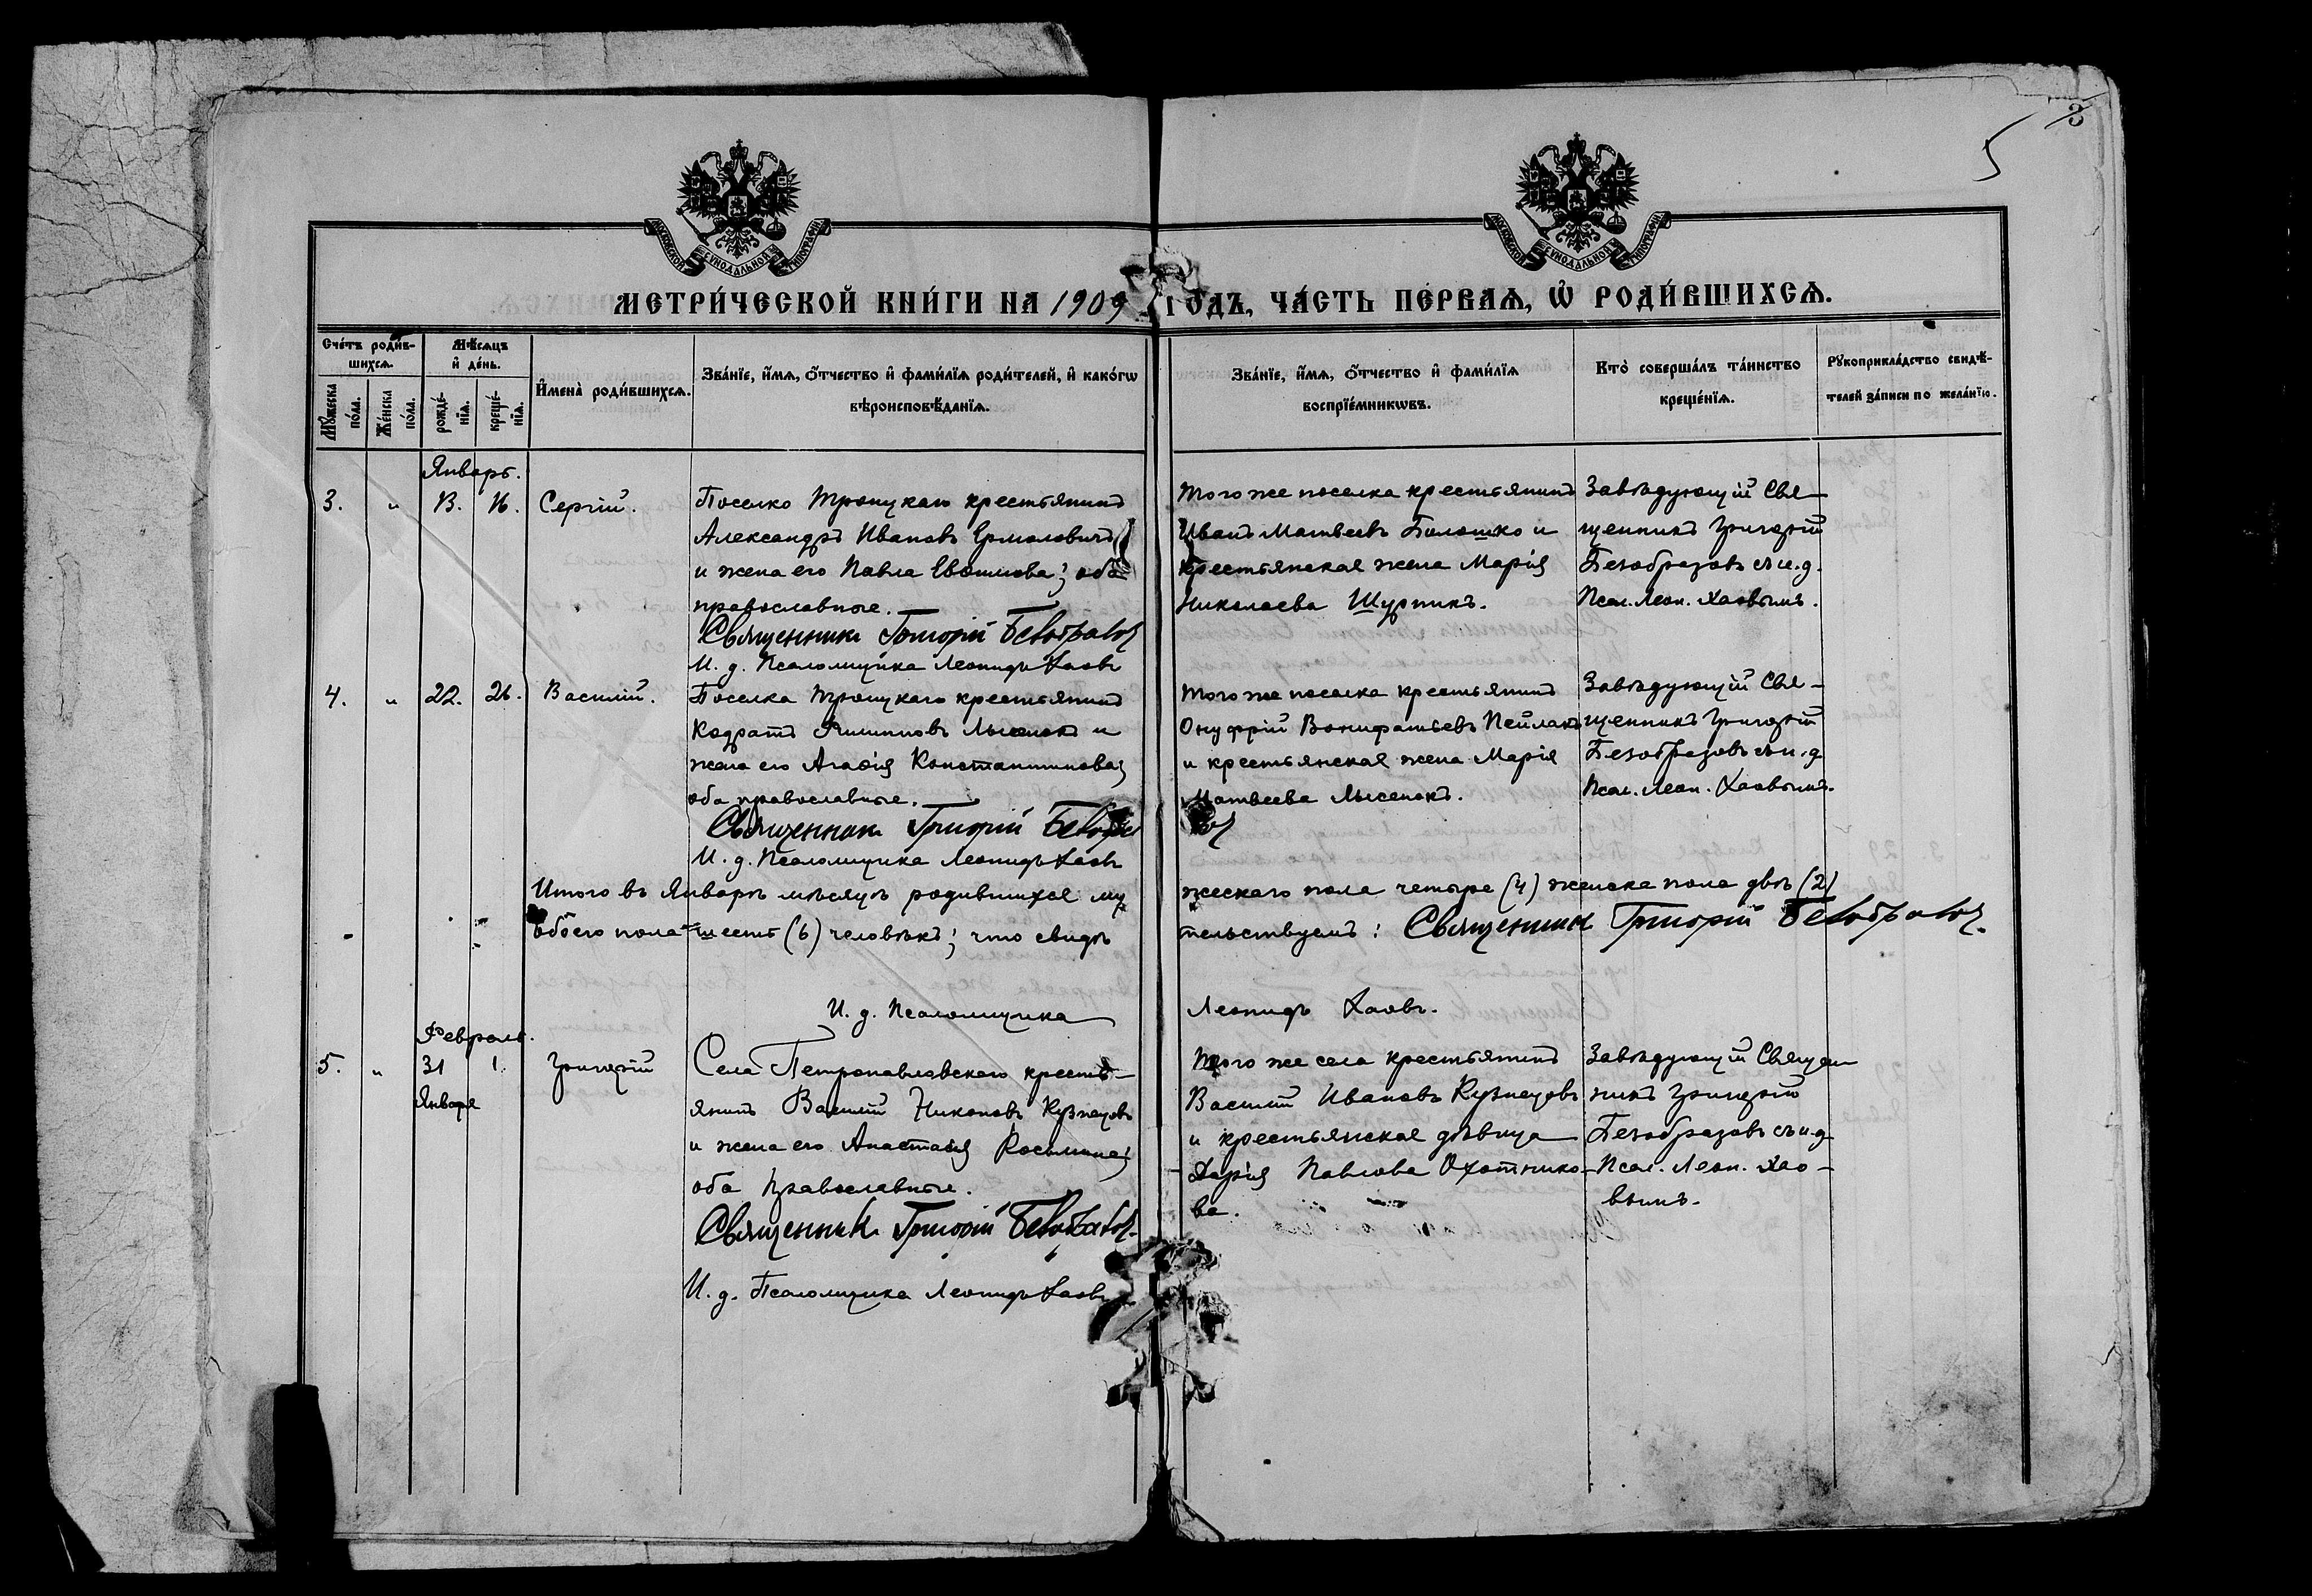 3
5
МОСКОВСКОЙ СѴНОДАЛЬНОЙ ТИПОГРАФІИ
МОСКОВСКОЙ СѴНОДАЛЬНОЙ ТИПОГРАФІИ
МЕТРИ́ЧЕСКОЙ КНИ́ГИ НА 1909 ГОДЪ, ЧА́СТЬ ПЕ́РВАѦ, Ѡ҆ РОДИ́ВШИХСѦ.
Сче́тъ роди́в-
шихсѧ.
Мꙋ́жеска по́ла.
Же́нска по́ла.
Мѣ́сѧцъ
и҆ де́нь.
рожде́-
нїѧ.
креще́-
нїѧ.
И҆мена̀ роди́вшихсѧ.
Зва́нїе, и҆́мѧ, ѻ҆́тчество и҆ фами́лїѧ роди́телей, и҆ како́гѡ
вѣроисповѣ́данїѧ.
Зва́нїе, и҆́мѧ, ѻ҆́тчество и҆ фами́лїѧ
воспрїе́мникѡвъ.
Кто̀ соверша́лъ та́инство
креще́нїѧ.
Рꙋкоприкла́дство свидѣ́-
телей за́писи по жела́нїю.
Январь.
3. " 13. 16. Сергій.
Поселко Троицкаго крестьянинъ
Александръ Ивановъ Ермоловичъ
и жена его Павла Евѳимова; оба
православные.
Священникъ Григорій Безобразовъ
И. д. Псаломщика Леонидъ Хаовъ
Того же поселка крестьянинъ
Иванъ Матвеевъ Болошко и
крестьянская жена Марія
Николаева Шурпикъ.
Завѣдующій Свя-
щенникъ Григорій
Безобразовъ съ и.д.
Псал. Леон. Хаовымъ.
4. " 22. 26. Василій.
Поселка Троицкаго крестьянинъ
Кодратъ Филиповъ Лысенокъ и
жена его Агаѳія Константинова;
оба православные.
Священникъ Григорій Безобра
зовъ
И. д. Псаломщика Леонидъ Хаовъ
Того же поселка крестьянинъ
Онуфрій Вонифатьевъ Пейлакъ
и крестьянская жена Марія
Матвеева Лысенокъ.
Завѣдующій Свя-
щенникъ Григорій
Безобразовъ съ и.д
Псал. Леон. Хаовымъ.
Итого въ Январѣ мѣсяцѣ родившихся му
жескаго пола четыре (4) женска пола двѣ (2)
обоего пола шесть (6) человѣкъ; что свидѣ
тельствуемъ: Священникъ Григорій Безобразовъ.
И. д. Псаломщика Леонидъ Хаовъ.
Февраль.
5. " 31 1. Григорій
Января
Села Петропавловскаго кресть-
янинъ Василій Никоновъ Кузнецовъ
и жена его Анастасія Косьмина;
оба православные.
Священникъ Григорій Безобразовъ.
И. д. Псаломщика Леонидъ Хаовъ
Того же села крестьянинъ
Василій Ивановъ Кузнецовъ
и крестьянская дѣвица
Дарія Павлова Охотнико-
ва.
Завѣдующій Священ-
никъ Григорій
Безобразовъ съ и.д
Псал. Леон. Хао-
вымъ.